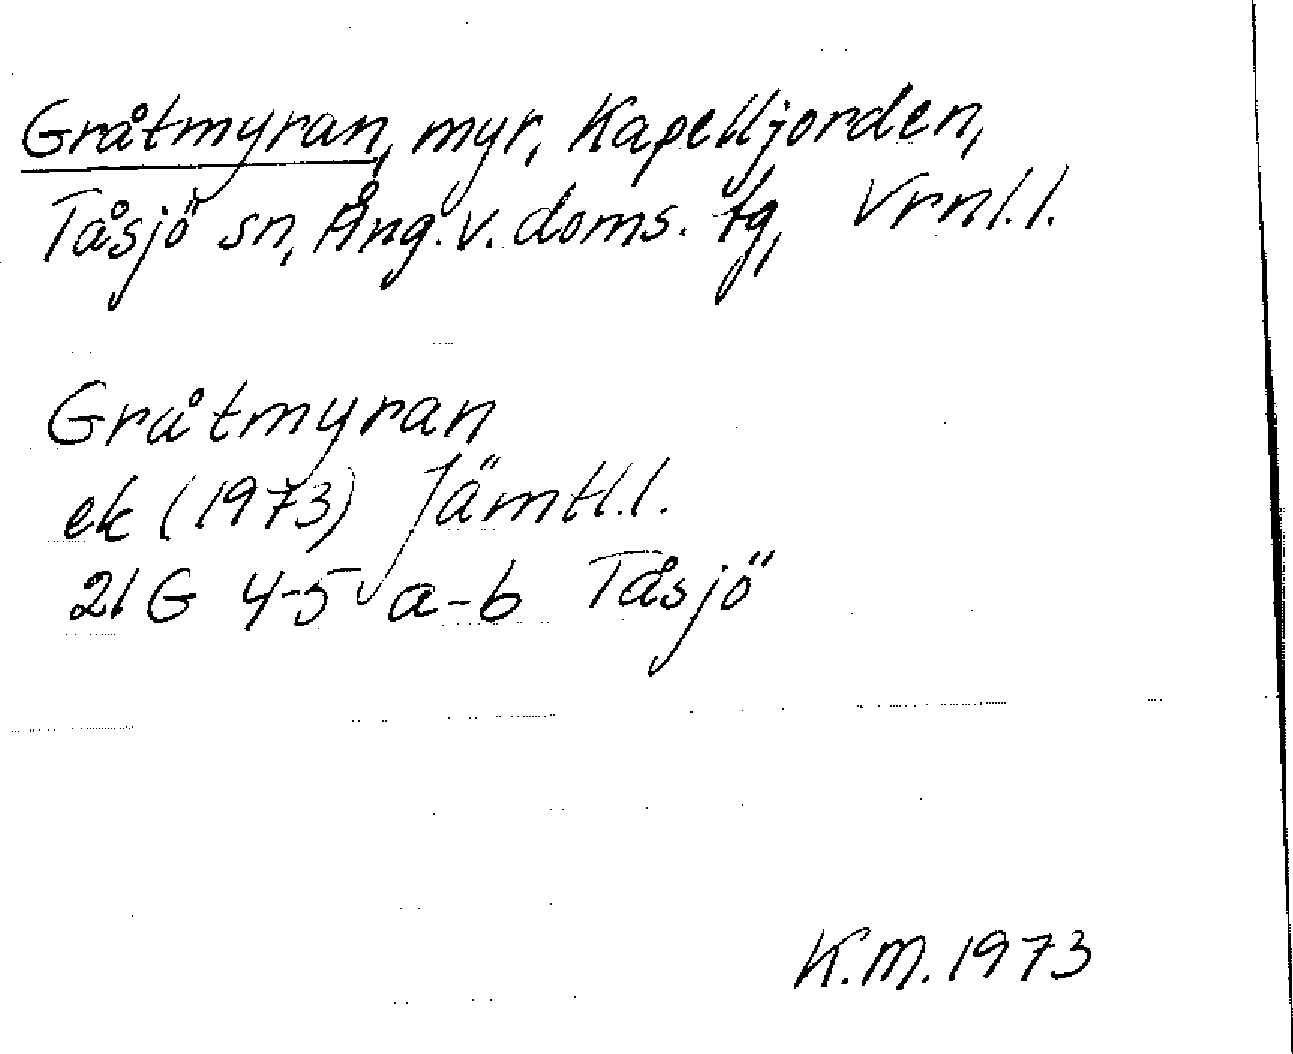 Gråtmyran, myr, Kapelljorden,
Tåsjö sn, Ång. v. doms. tg, Vrnl. l.
Gråtmyran
ek (1973) Jämtl. l.
21 G 4-5 a-b Tåsjö
K.M. 1973